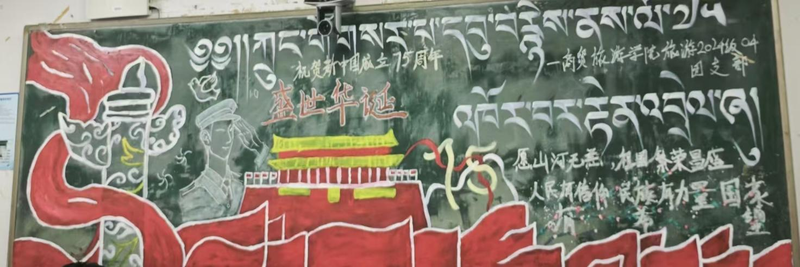 ༄༅།། ཀྲུང་གོ་གསར་པ་དབུ་བརྙེས་ནས་ལོ་༧༥
祝贺新中国成立75周年
—商贸旅游学院旅游2024级04
团支部
盛世华诞
འཁོར་བར་རྟེན་འབྲེལ་ཞུ།
75
愿山河无恙，祖国繁荣昌盛
人民有信仰 民族有力量 国家